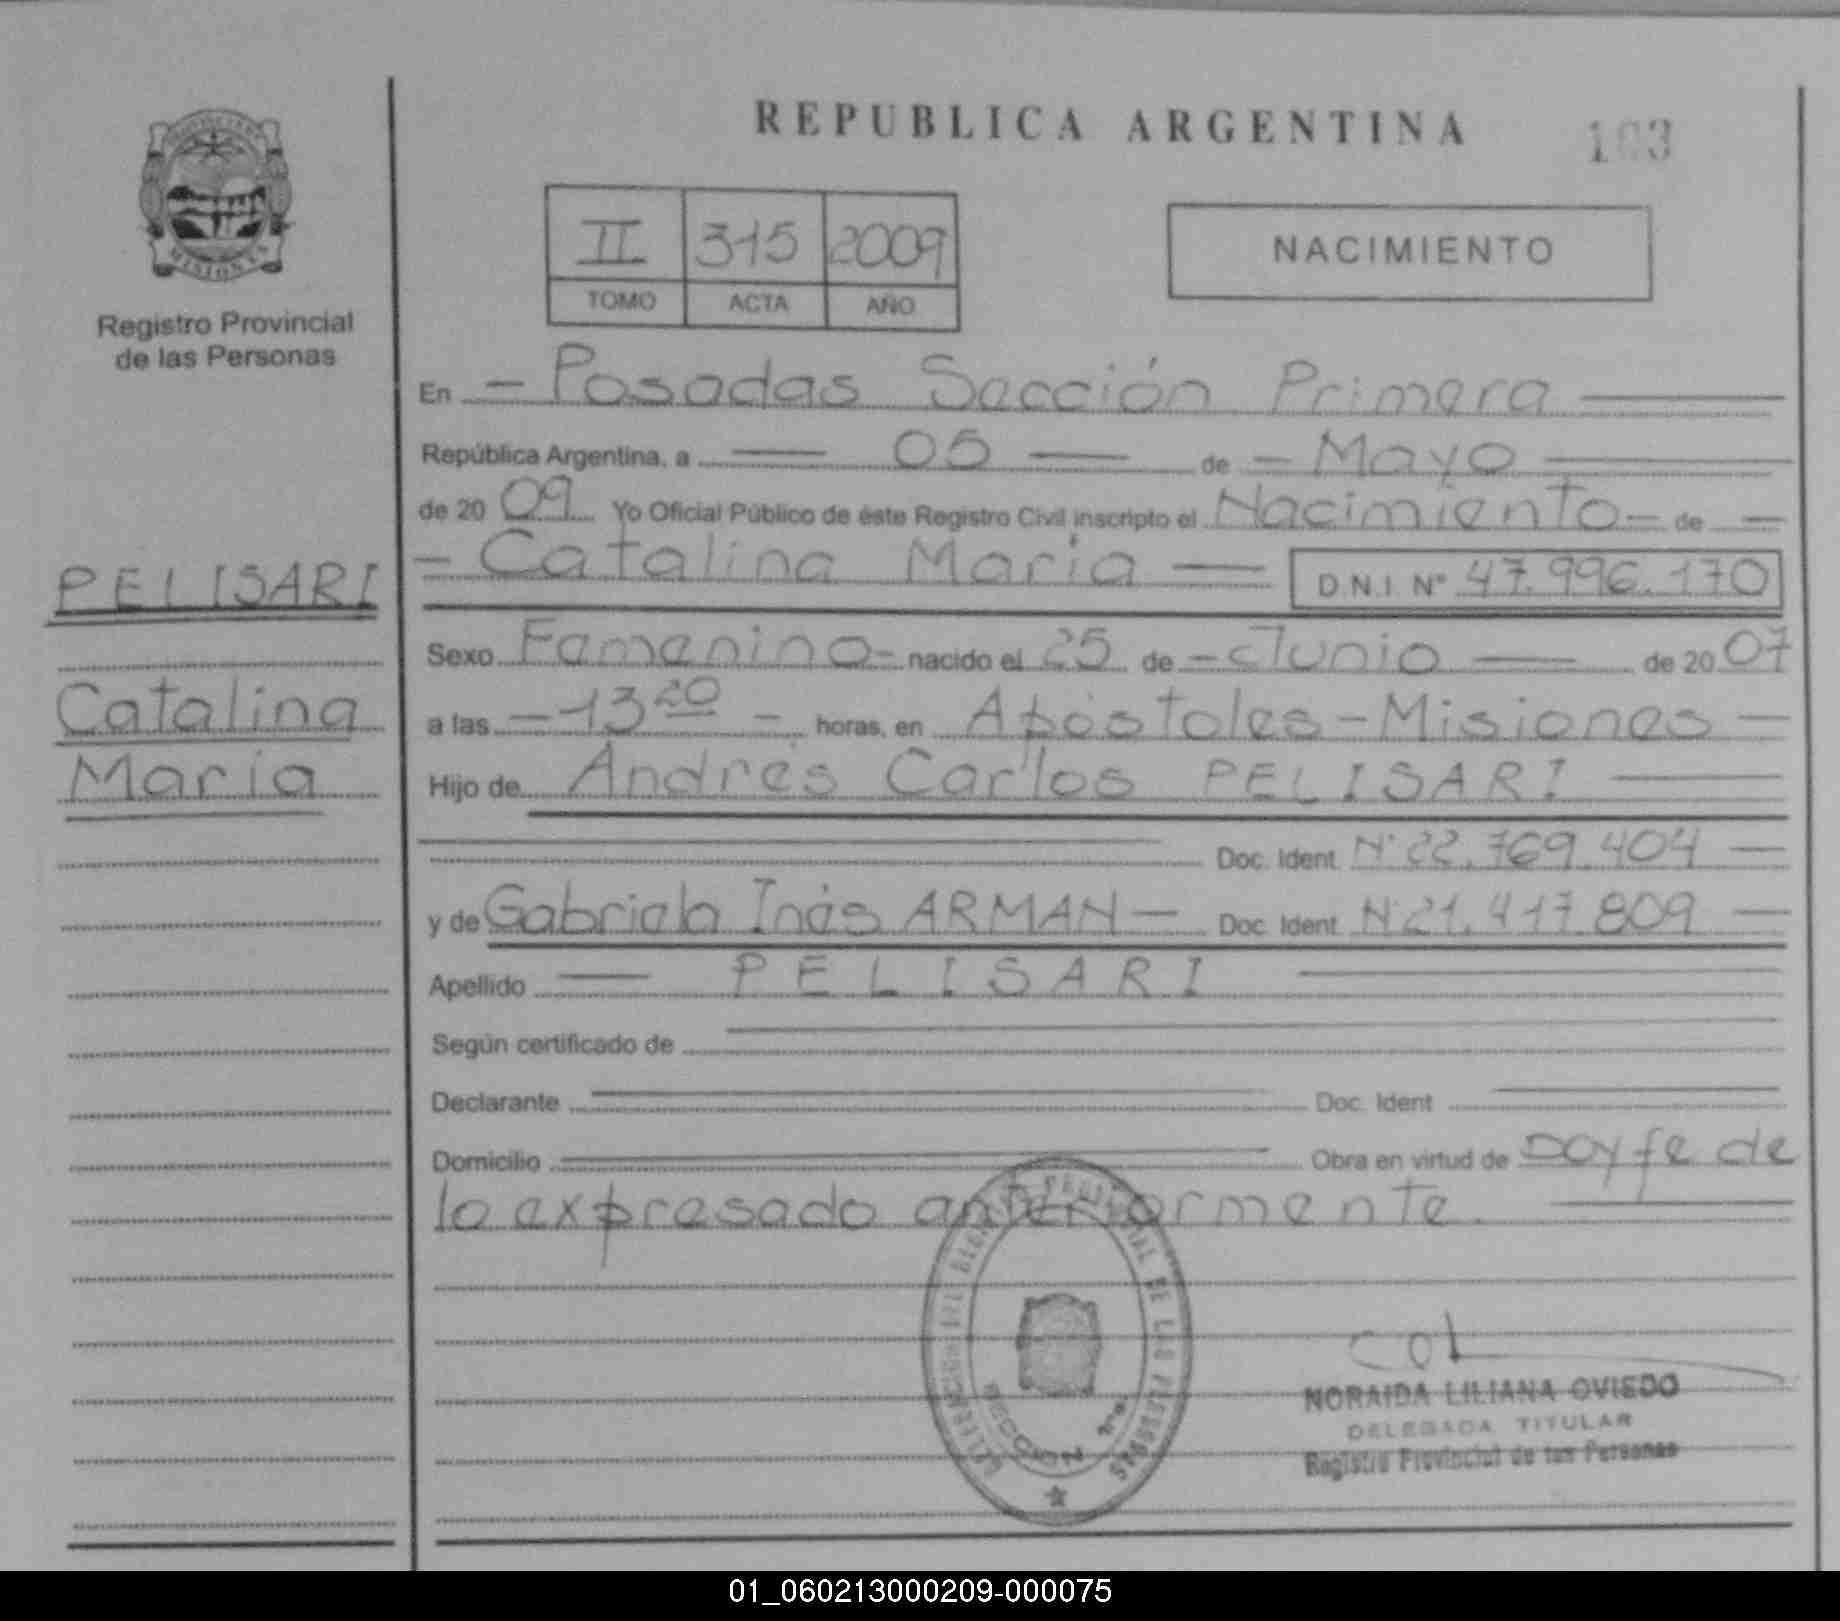 REPUBLICA ARGENTINA
103
MISIONES
Registro Provincial
de las Personas
II 315 2009
TOMO ACTA AÑO
NACIMIENTO
En - Posadas Sección Primera
República Argentina, a 05 de - Mayo
de 20 09 Yo Oficial Público de éste Registro Civil inscripto el Nacimiento - de -
- Catalina María - D.N.I. N° 47.996.170
PELISARI
Catalina
María
Sexo Femenino - nacido el 25 de - Junio - de 20 07
a las - 13 20 - horas, en Apóstoles - Misiones -
Hijo de Andrés Carlos PELISARI
Doc. Ident. N° 22.769.404 -
y de Gabriela Inés ARMAN - Doc. Ident. N° 21.417.809 -
Apellido - PELISARI
Según certificado de
Declarante Doc. Ident
Domicilio Obra en virtud de Doy fe de
lo expresado anteriormente.
DE LAS PERSONAS
SECCION 1ra.
NORAIDA LILIANA OVIEDO
DELEGADA TITULAR
Registro Provincial de las Personas
01_060213000209-000075